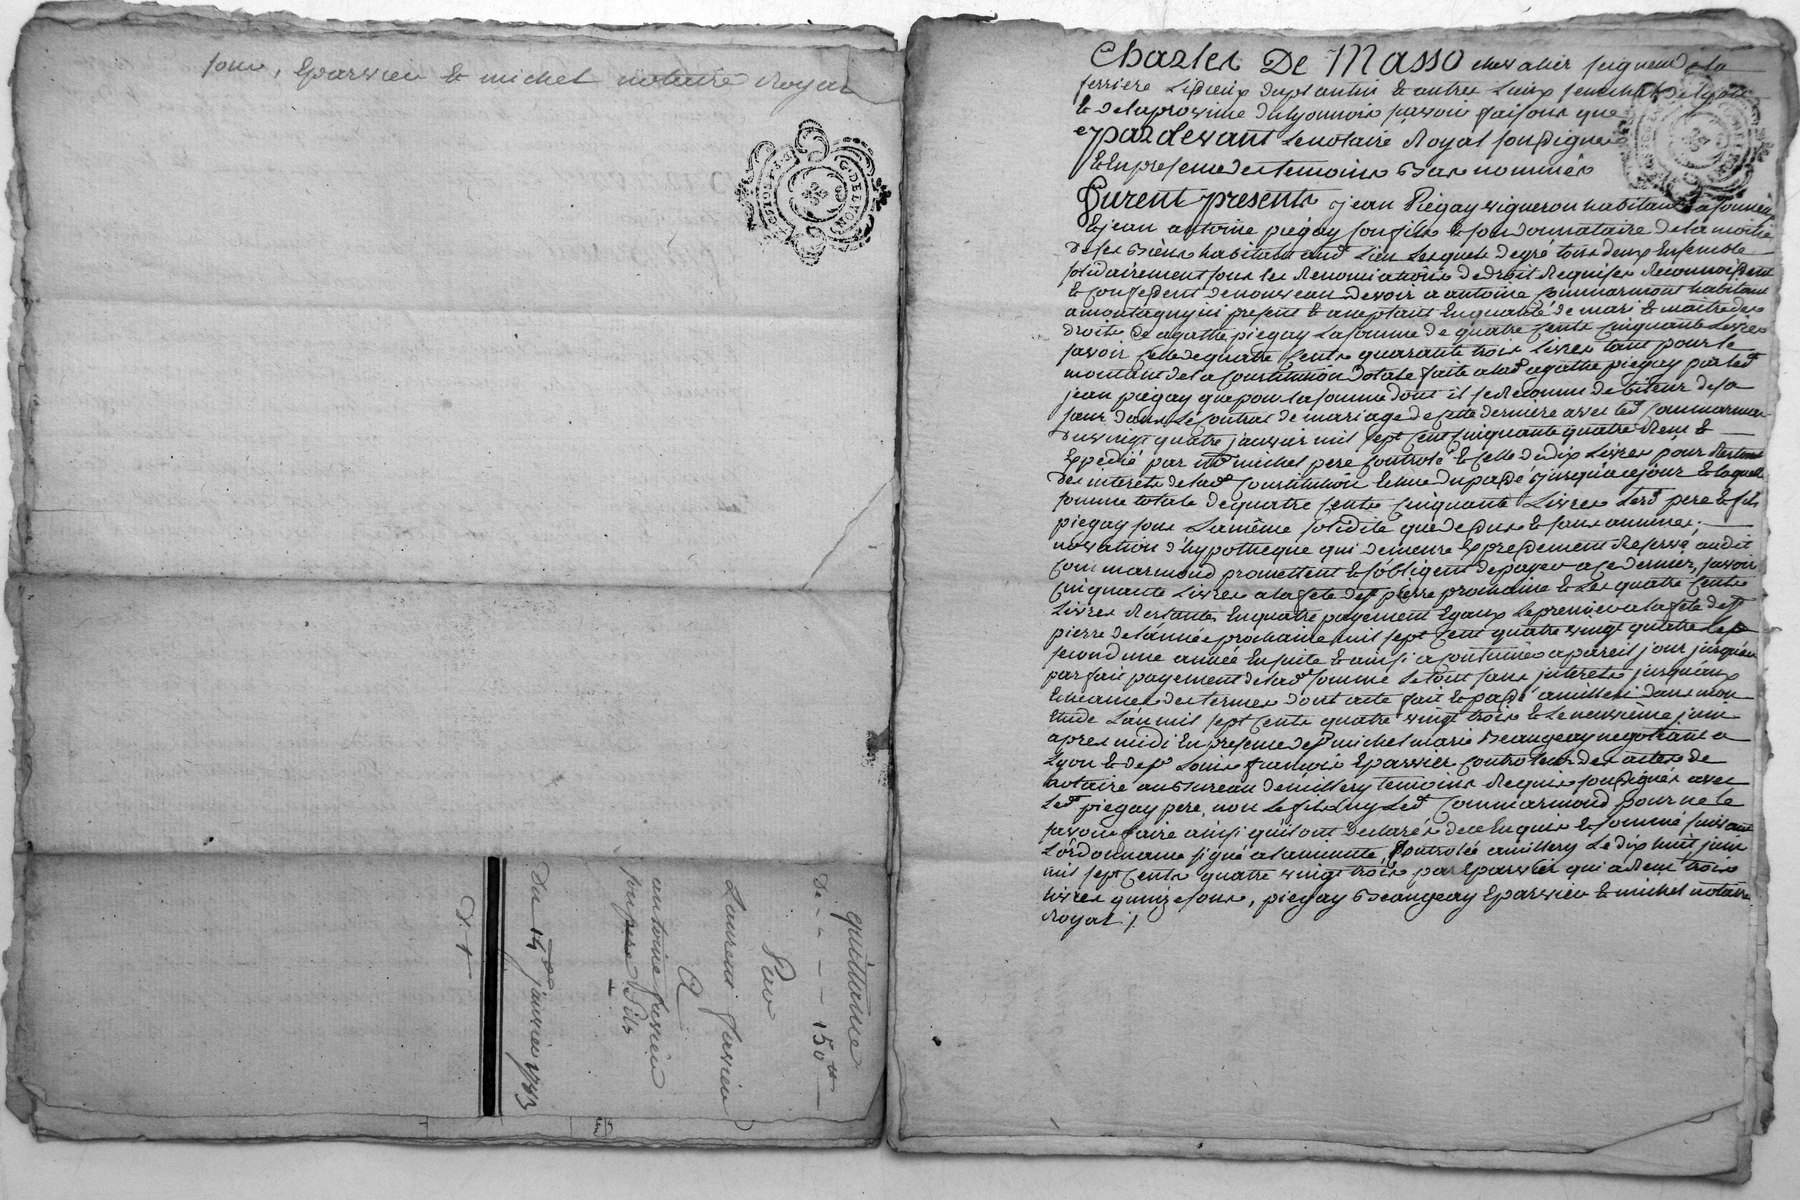 sous, Eparvier & michel notaire Royal
G. DE LYON
quittance
De - - - 150 ₶
Par
Laurent
A
antoine
pour pere & fils
Du 14e janvier 1783
Charles De Masso chevalier seigneur de la
ferriere Lissieux Duplantin & autres Lieux senechal de Lyon
& de la province du lyonnois savoir faisons que
pardevant Le notaire Royal soussigné
& En presence des temoins Bas nommés
Furent presents jean Piégay vigneron habitant a
& jean antoine piégay son fils & son donnataire de la moitié
de ses Biens habitant aud. Lieu Lesquels de gré tous deux Ensemble
solidairement sous les Renonciations de droit Requises Reconnoissent
& confessent de nouveau devoir a antoine Commarmont habitant
a montagny ici present & acceptant En qualité de mari & maitre des
droits de agathe piegay La somme de quatre Cents Cinquante Livres
savoir Celle de quatre Cents quarante trois Livres tant pour le
montant de la Constitution Dotale faite a lad. agathe piegay par led.
jean piegay que pour la somme dont il se Reconnu debiteur de sa
sœur dans Le Contrat de mariage de Cette derniere avec led. Commarmon
Du vingt quatre janvier mil sept Cent Cinquante quatre Recu &
Expedié par me michel pere Controlé & Celle de dix Livres pour Restant
Des interets de lad. Constitution Echue du passé jusqu'a ce jour & laquelle
somme totale de quatre Cents Cinquante Livres Lesd. pere & fils
piegay sous La même solidité que dessus & sans aucune
novation d'hypotheque qui demeure Expressement Reservé audit
Commarmond promettent & s'obligent de payer a ce dernier, savoir
Cinquante Livres a la fete de st pierre prochaine & Les quatre Cents
Livres Restantes En quatre payement Egaux Le premier a la fete de st
pierre de l'année prochaine mil sept Cent quatre vingt quatre Le
second une année Ensuite & ainsi a Continuer a pareil jour jusqu'au
parfait payement de lad. somme Le tout sans interets jusqu'aux
Echeances des termes dont acte fait & passé a millery dans mon
Etude L'an mil sept Cents quatre vingt trois & Le neuvième juin
apres midi En presence de sr michel marie Beaugeay negotiant a
Lyon & de sr Louis francois Eparvier Controleur des actes de
notaire au Bureau de millery temoins Requis soussignés avec
Led. piegay pere, non Le fils Ny Led. Commarmond pour ne le
savoir faire ainsi qu'ils ont declarés de ce Enquis & sommé suivant
L'ordonnance signé a la minute, Controlée a millery Le dix huit juin
mil sept Cents quatre vingt trois par Eparvier qui a Recu trois
Livres quinze sous, piegay Beaugeay Eparvier & michel notaire
Royal /.